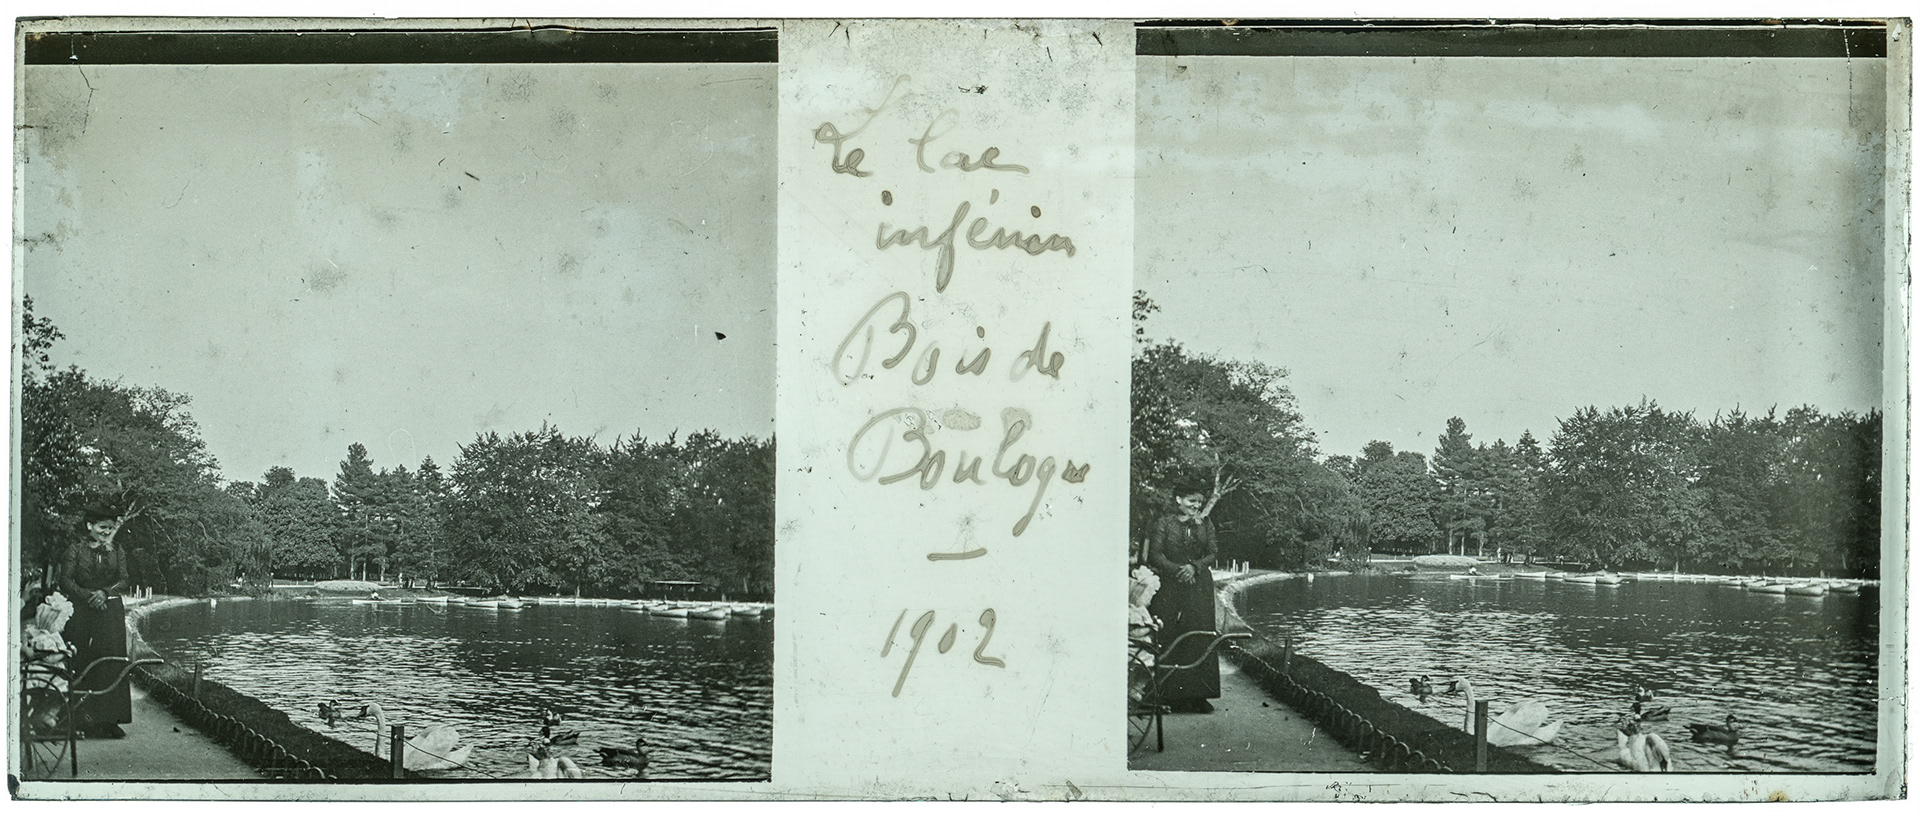 Le lac
inférieur
Bois de
Boulogne
1902